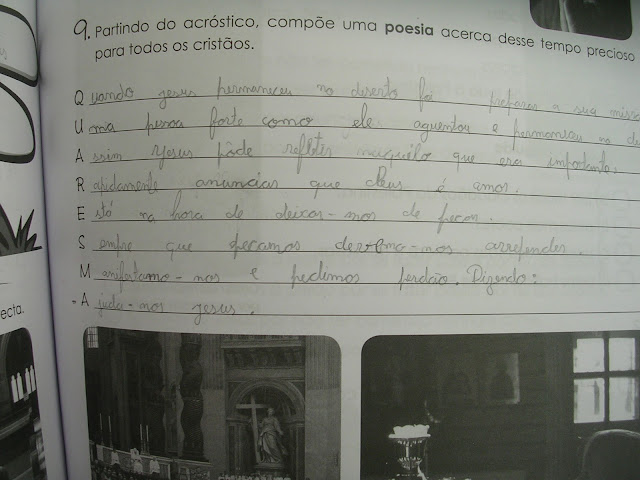 9. Partindo do acróstico, compõe uma poesia acerca desse tempo precioso
para todos os cristãos.
Quando jesus permaneceu no deserto foi preparar a sua missã
Uma pessoa forte como ele aguentou e permaneceu no de
Assim Jesus pôde refletir naquilo que era importante.
Rapidamente anunciar que Deus é amor.
Está na hora de deixar-mos de pecar.
Sempre que pecamos devemo-nos arrepender.
Manifestamo-nos e pedimos perdão. Dizendo:
-Ajuda-nos jesus.
ecta.